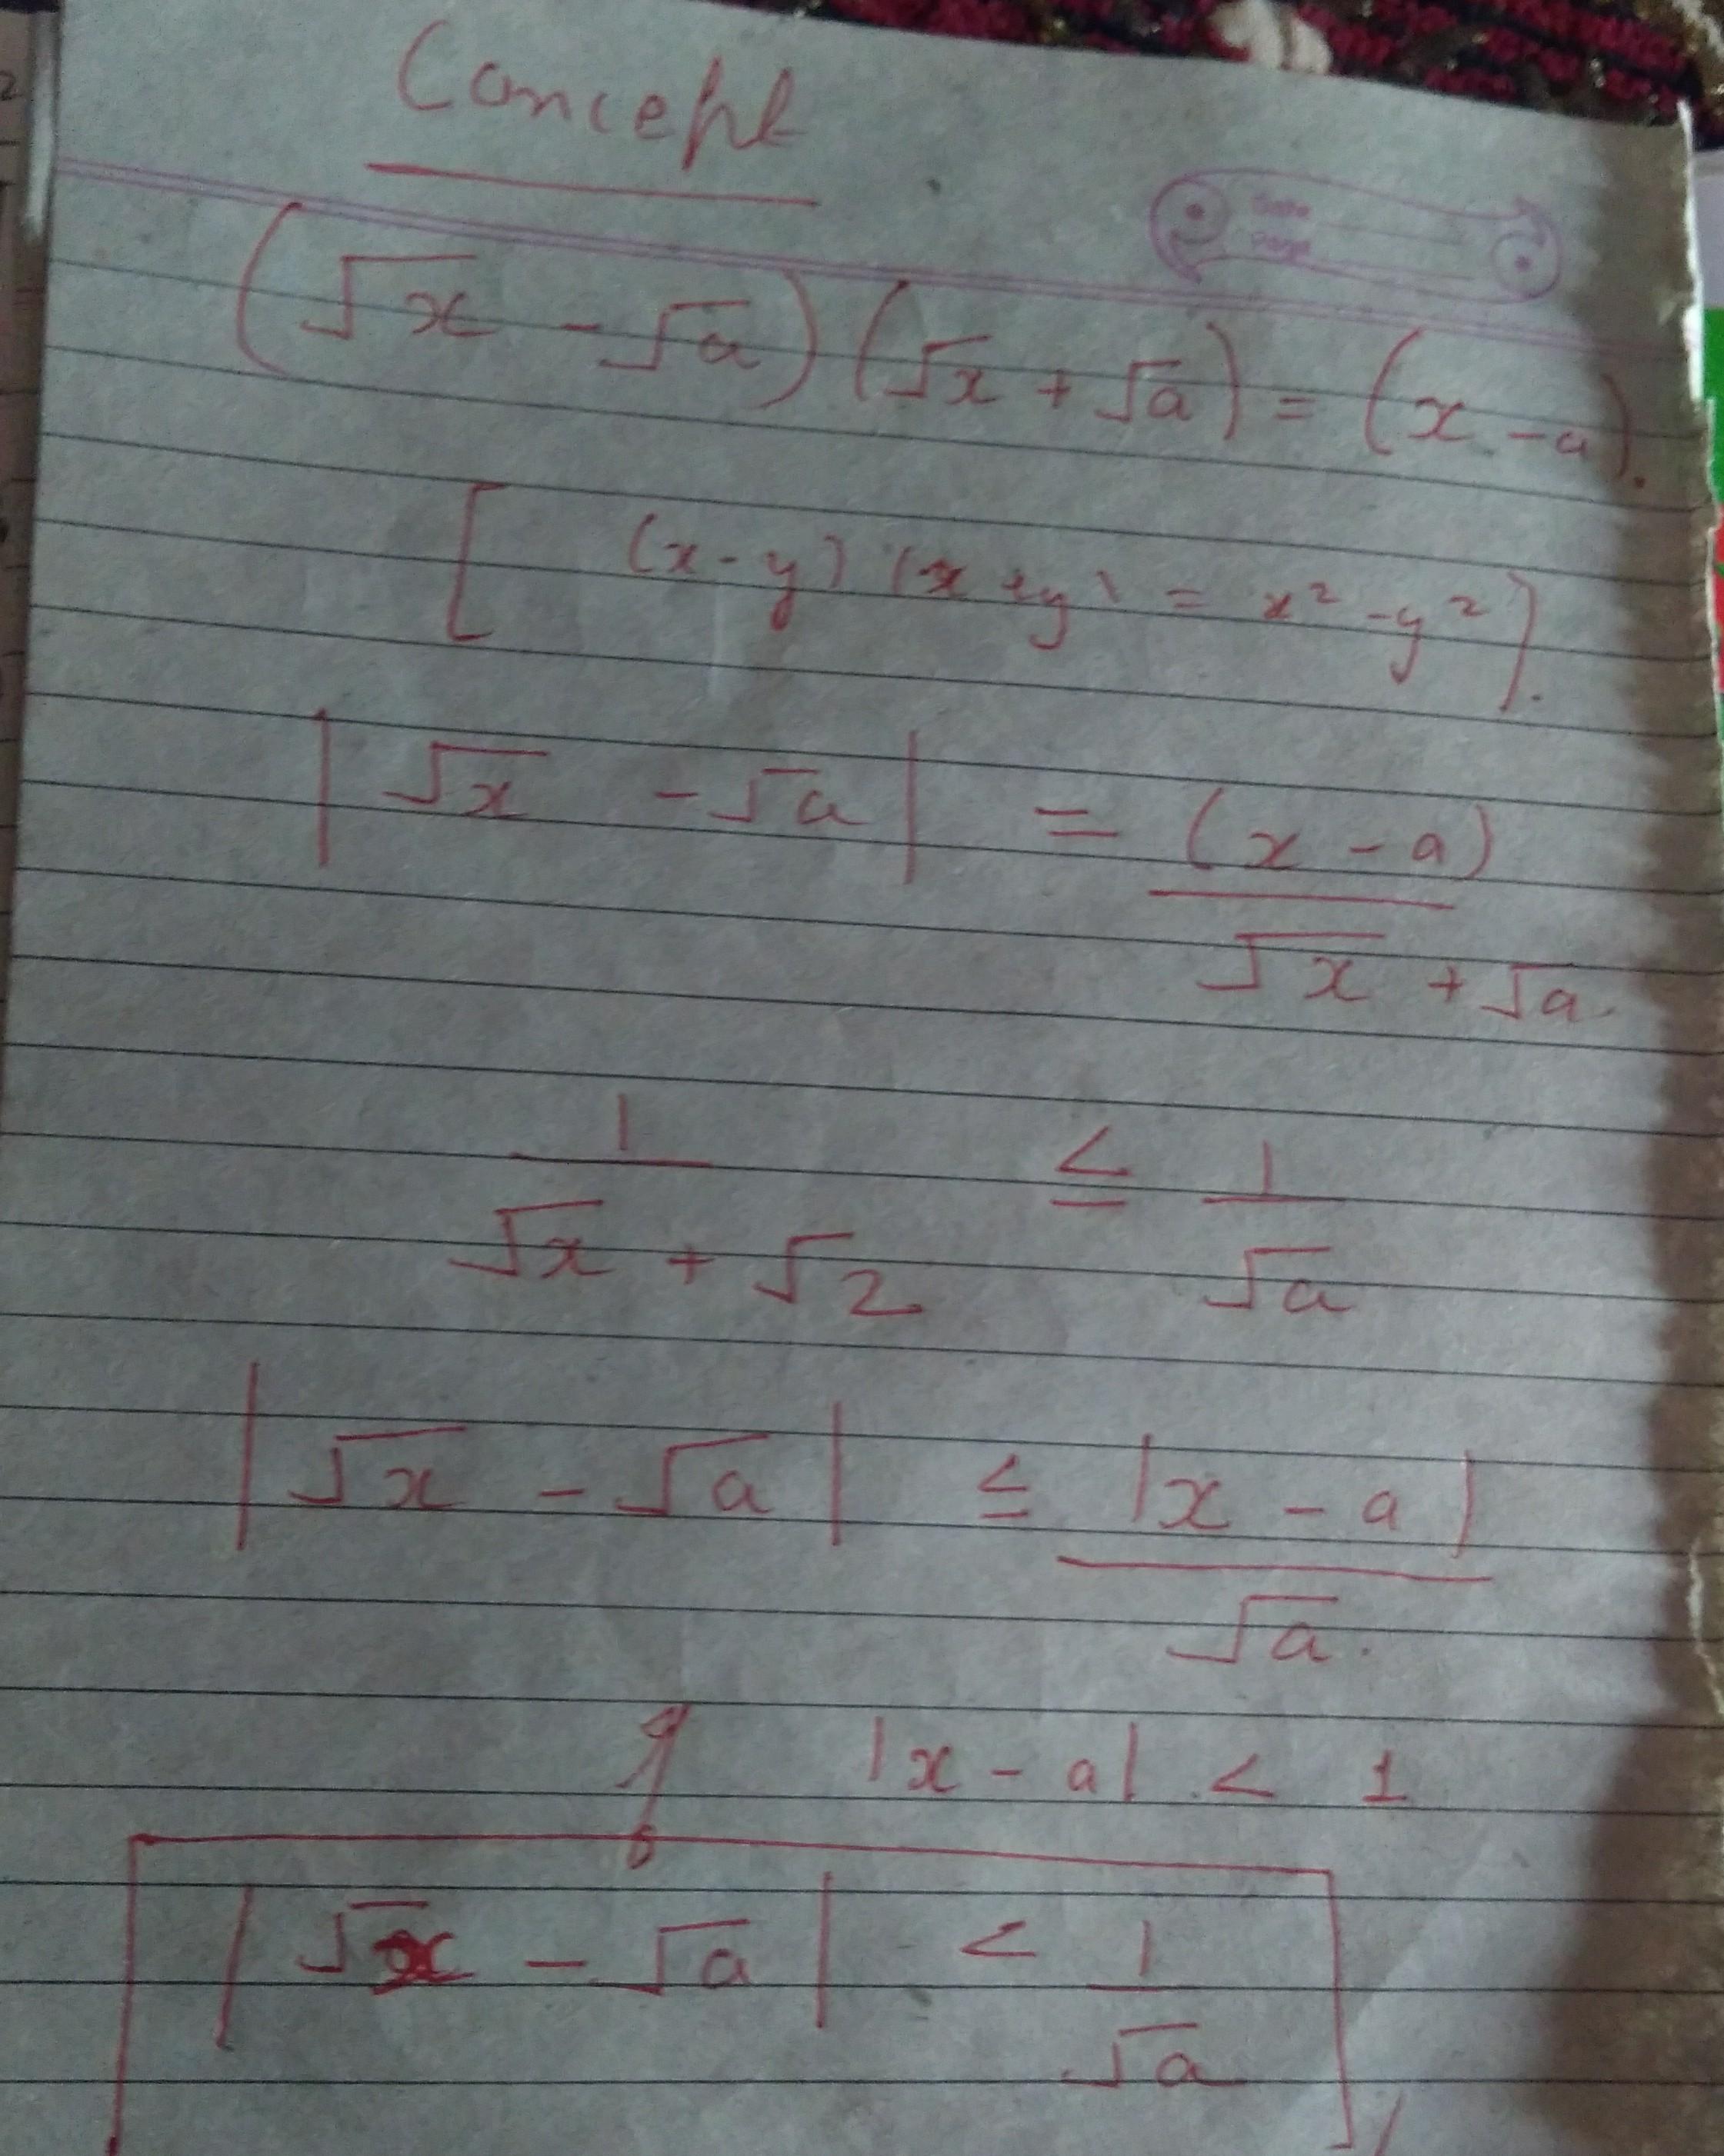 Concept
Date
Page
(√x - √a) (√x + √a) = (x - a).
[ (x - y) (x + y) = x² - y² ].
| √x - √a | = (x - a)
√x + √a.
1 ≤ 1
√x + √2 √a
| √x - √a | ≤ |x - a|
√a.
if |x - a| < 1
| √x - √a | < 1
√a